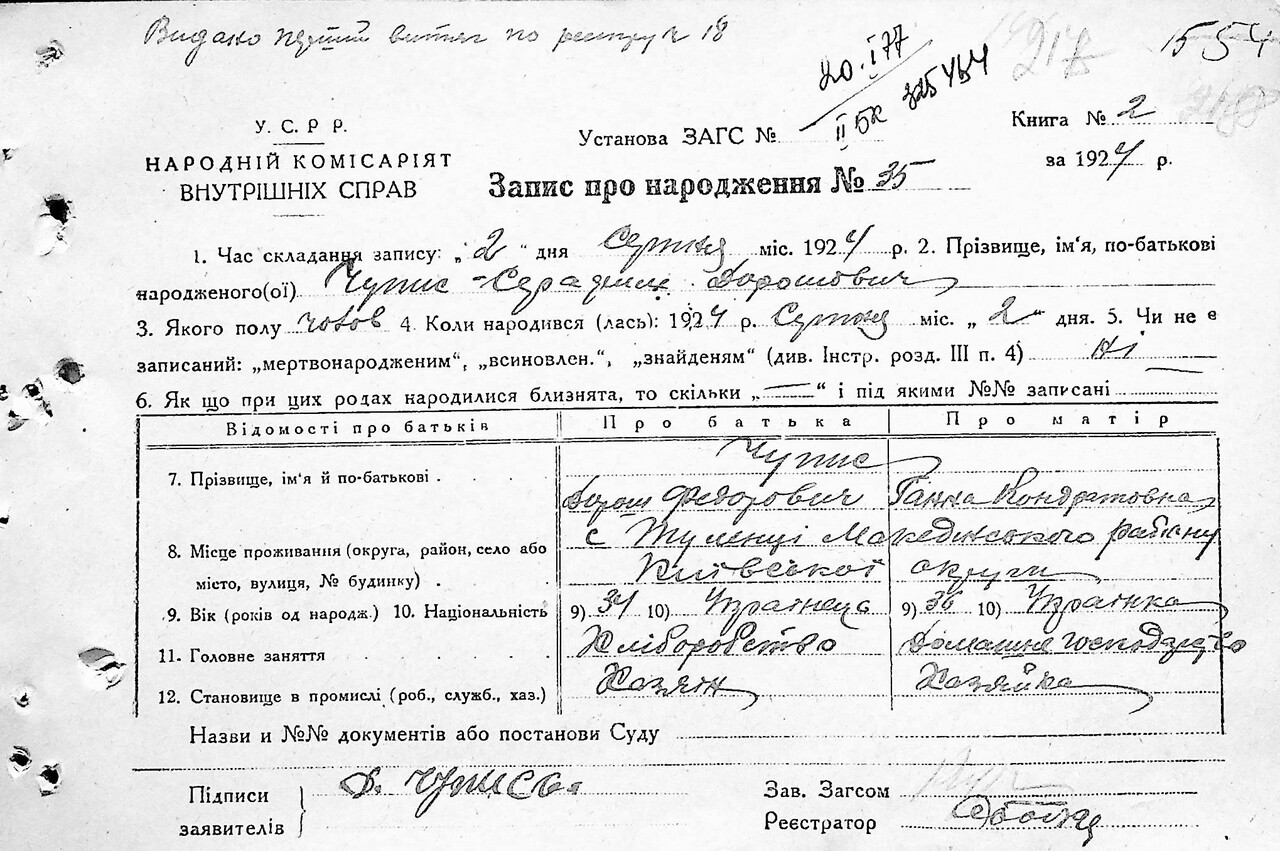 Видано перший витяг по реєстру № 18
20.I 77
II БК 325464
1554
У. С. Р Р.
НАРОДНІЙ КОМІСАРІЯТ
ВНУТРІШНІХ СПРАВ
Установа ЗАГС №
Книга № 2
за 1924 р.
Запис про народження № 35
1. Час складання запису: „2“ дня Серпня міс. 1924 р. 2. Прізвище, ім'я, по-батькові
народженого(ої) Чупис Дорошович
3. Якого полу чолов 4. Коли народився (лась): 1924 р. Серпня міс. „2“ дня. 5. Чи не є
записаний: „мертвонародженим“, „всиновлен.“, „знайденям“ (див. Інстр. розд. III п. 4) Ні
6. Як що при цих родах народилися близнята, то скільки „—“ і під якими №№ записані
Відомості про батьків Про батька Про матір
7. Прізвище, ім'я й по-батькові . Чупис
Дорош Федорович Ганна Кондратовна
8. Місце проживання (округа, район, село або
місто, вулиця, № будинку) .
с Тулинці Македонського району
Київської округи
9. Вік (років од народж.) 10. Національність 9) 34 10) Українець 9) 36 10) Українка
11. Головне заняття . . . . . Хліборобство Домашнє господарство
12. Становище в промислі (роб., служб., хаз.) Хазяїн Хазяйка
Назви и №№ документів або постанови Суду
Підписи
заявителів
Д. Чупис
Зав. Загсом
Реєстратор